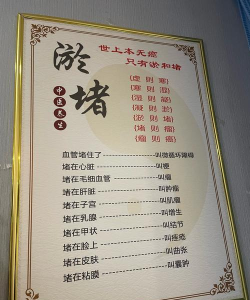 淤堵
中医养生
世上本无癌
只有淤和堵
(虚 则 寒)
(寒 则 湿)
(湿 则 凝)
(凝 则 淤)
(淤 则 堵)
(堵 则 瘤)
(瘤 则 癌)
血管堵住了--------叫微循环障碍
堵在心脏--------叫梗
堵在毛细血管--------叫瘤
堵在肝脏--------叫肿瘤
堵在子宫--------叫肌瘤
堵在乳腺--------叫增生
堵在甲状--------叫结节
堵在脸上--------叫痤疮
堵在皮肤--------叫曲张
堵在粘膜--------叫囊肿